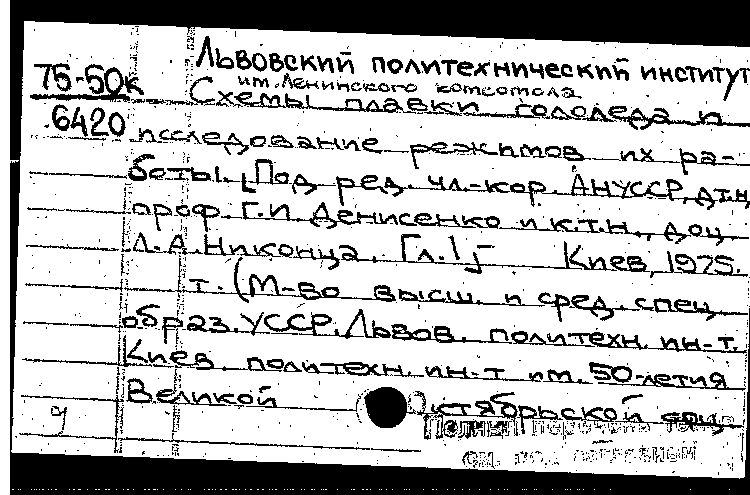 Львовский политехнический институт
75-50к
им. Ленинского комсомола
Схемы плавки гололеда и
6420
исследование режимов их ра-
боты. [Под ред. чл.-кор. АНУССР, д.т.н.
проф. Г.И. Денисенко и к.т.н., доц
Л.А. Никонца. Гл. 1 ]- Киев, 1975.
т. (М-во высш. и сред. спец
образ. УССР. Львов. политехн. ин-т.
Киев. политехн. ин-т им. 50-летия
Великой Октябрьской соц.
Полный перечень
см. под